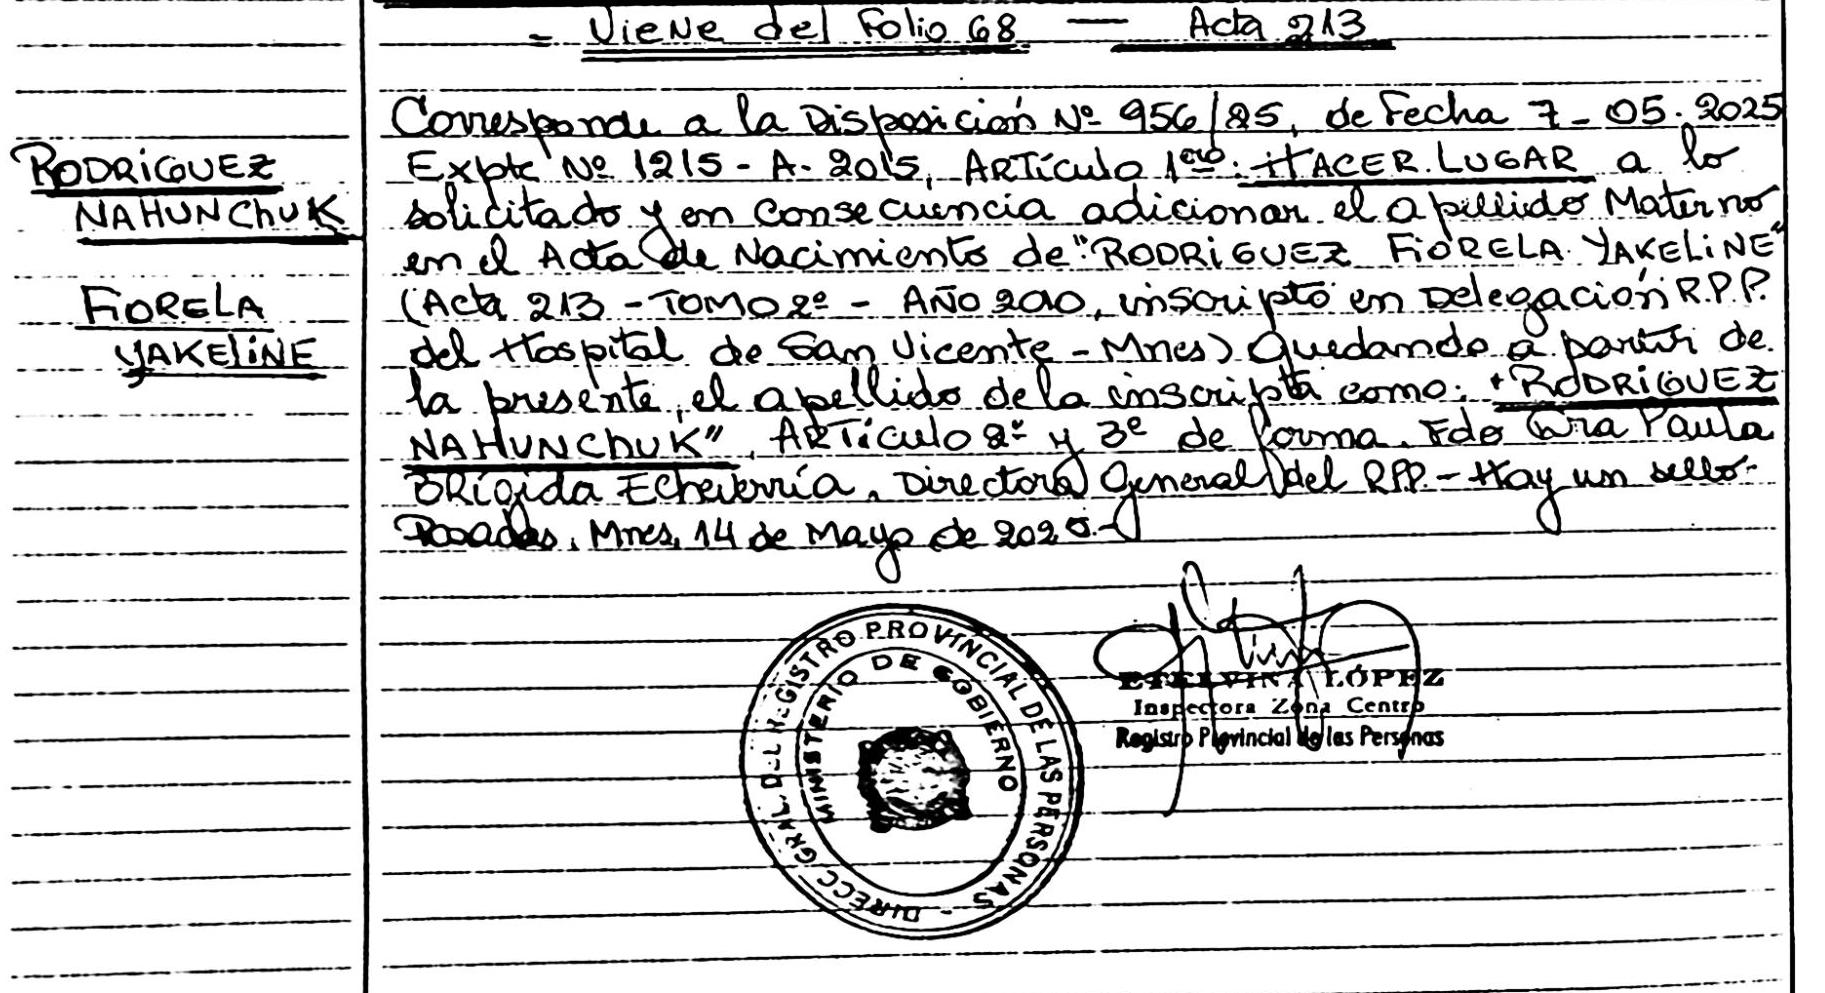 = Viene del Folio 68 — Acta 213
Corresponde a la Disposición Nº 956/25, de Fecha 7-05-2025
Expte Nº 1215-A-2015, ARTículo 1ero: HACER LUGAR a lo
solicitado y en consecuencia adicionar el apellido Materno
en el Acta de Nacimiento de "RODRIGUEZ FIORELA YAKELINE"
(Acta 213 - TOMO 2º - AÑO 2010, inscripto en Delegación R.P.P.
del Hospital de San Vicente - Mnes) Quedando a partir de
la presente, el apellido de la inscripta como: "RODRIGUEZ
NAHUNCHUK". ARTículo 2º y 3º de forma. Fdo Dra Paula
BRígida Echeverría. Directora General del RPP.- Hay un sello-
Posadas, Mnes, 14 de Mayo de 2025.-
RODRIGUEZ
NAHUNCHUK
FIORELA
YAKELINE
DIRECC. GRAL. DEL REGISTRO PROVINCIAL DE LAS PERSONAS -
MINISTERIO DE GOBIERNO
ETELVINA LÓPEZ
Inspectora Zona Centro
Registro Provincial de las Personas